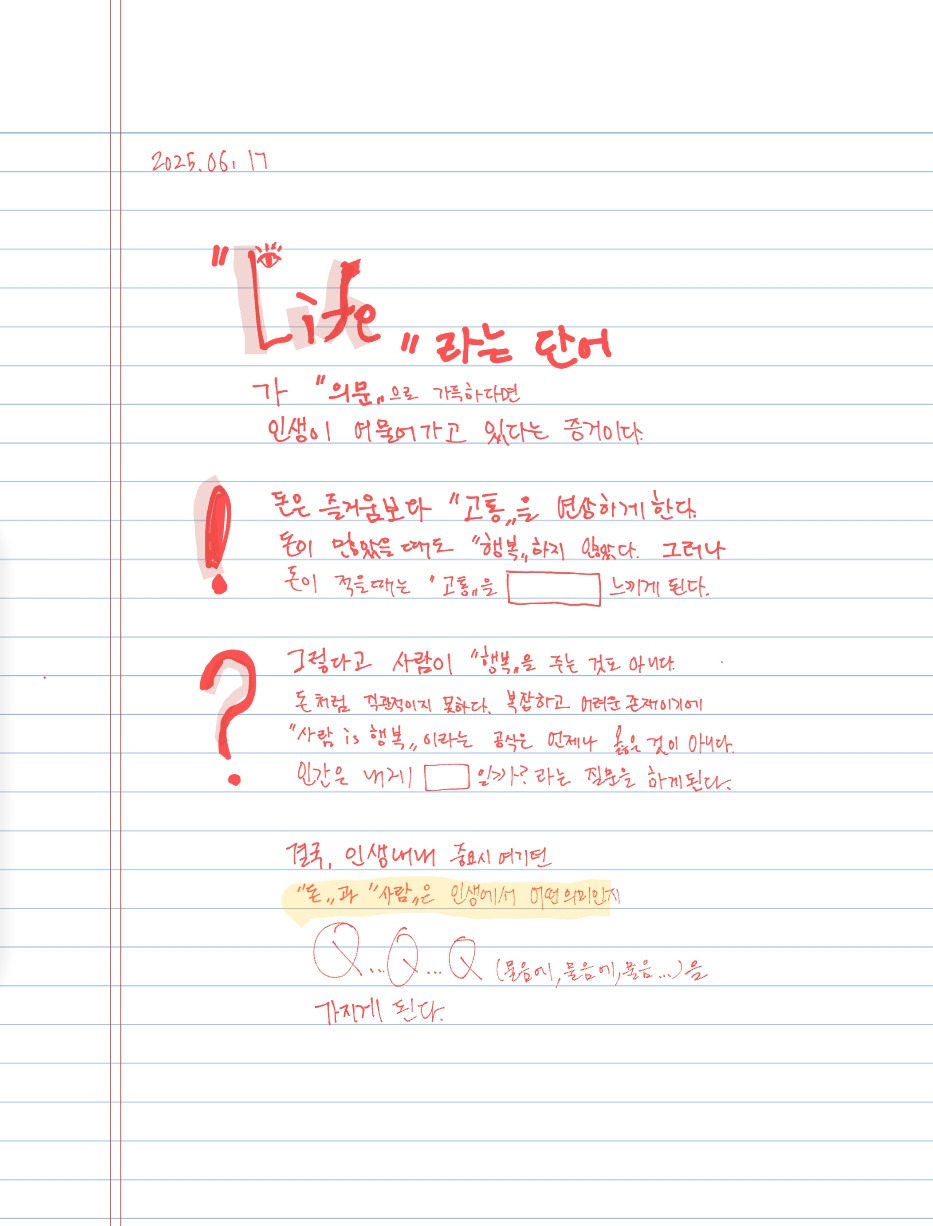 2025.06.17
"Life"라는 단어
가 "의문"으로 가득하다면
인생이 여물어가고 있다는 증거이다.
돈은 즐거움보다 "고통"을 연상하게 한다.
돈이 많았을 때도 "행복"하지 않았다. 그러나
돈이 적을때는 "고통"을 느끼게 된다.
그렇다고 사람이 "행복"을 주는 것도 아니다.
돈처럼 직관적이지 못하다. 복잡하고 어려운 존재이기에
"사람 is 행복"이라는 공식은 언제나 옳은 것이 아니다.
인간은 내게 일까? 라는 질문을 하게된다.
결국, 인생내내 중요시 여기던
"돈"과 "사람"은 인생에서 어떤의미인지
Q...Q...Q (물음에, 물음에, 물음...)을
가지게 된다.